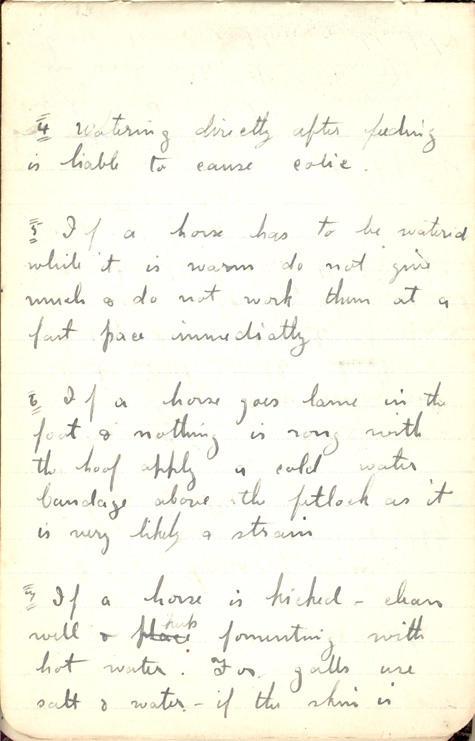 4 Watering directly after feeding
is liable to cause colic.
5 If a horse has to be watered
while it is warm do not give
much & do not work them at a
fast pace immediatly
6 If a horse goes lame in the
foot & nothing is rong with
the hoof apply a cold water
bandage above the fetlock as it
is very likely a strain
7 If a horse is kicked - clean
well & place keep fomenting with
hot water. For galls use
salt & water - if the skin is